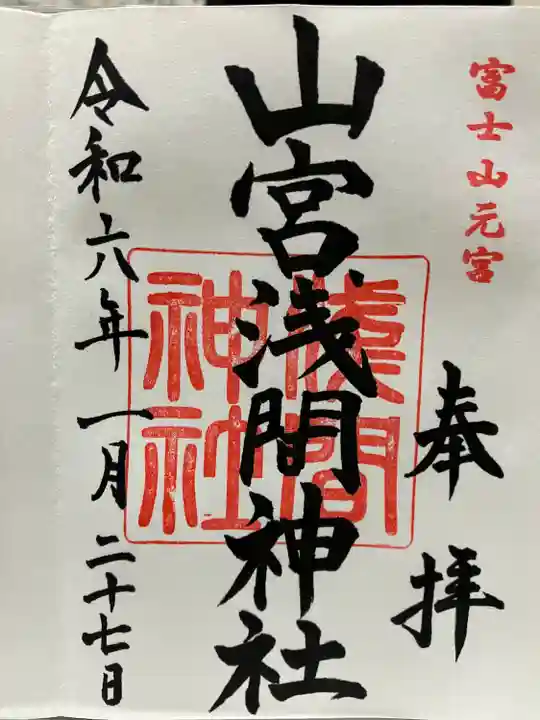 富士山元宮
奉拝
山宮浅間神社
浅間
神社
令和六年一月二十七日